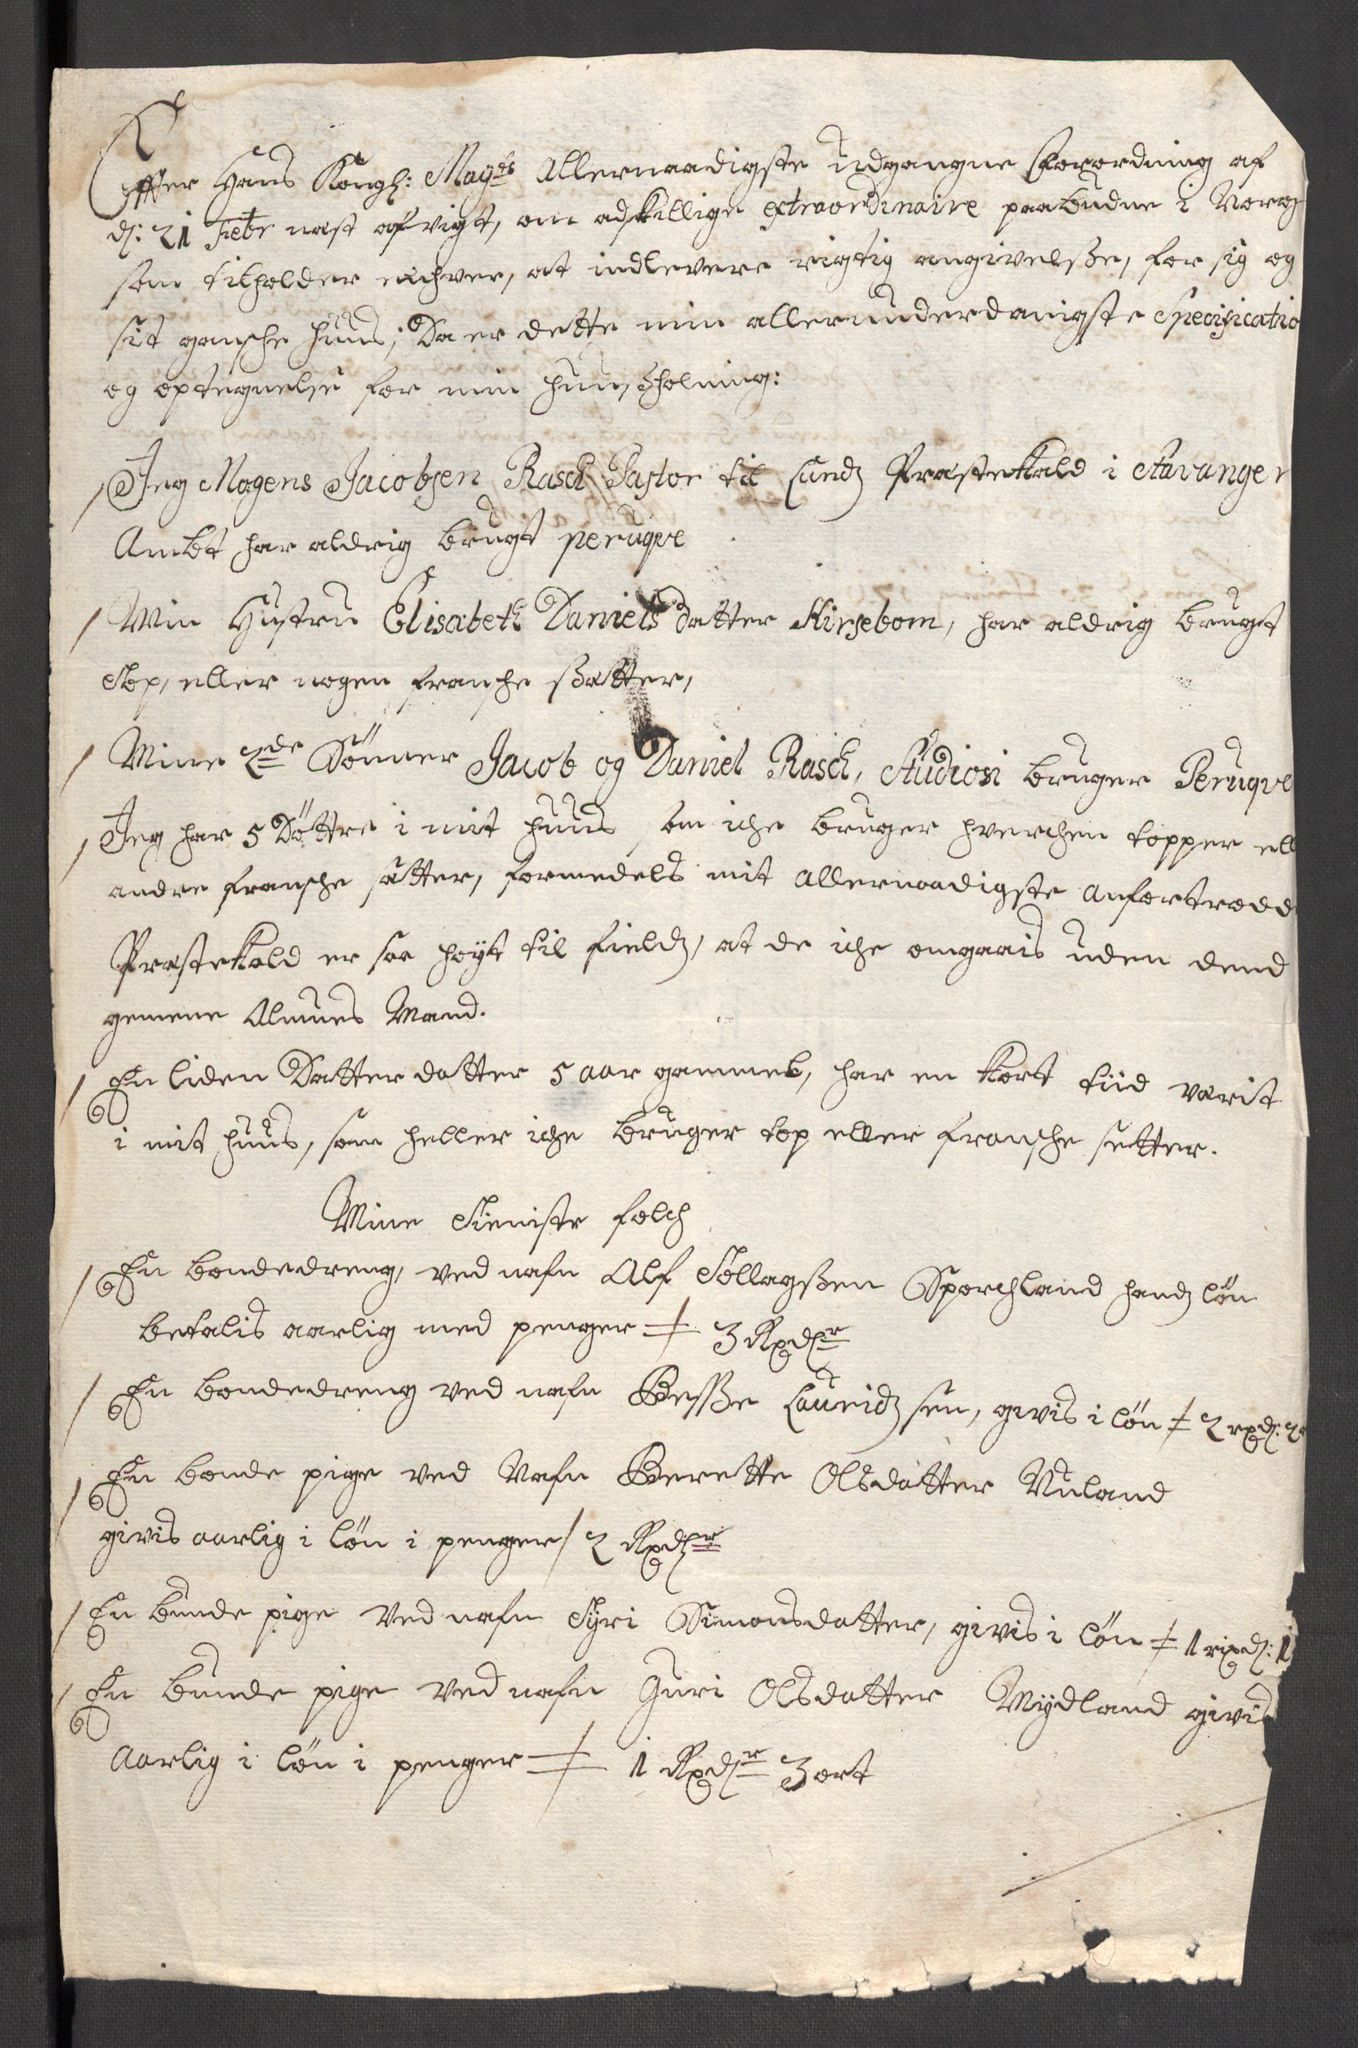 Effter Hans Kongl: Mayts Allernaadigste udgangne Forordning af
d: 21 Febr nast afvigt, om adskillige extraordinaire paabudne i Norge
som tilholder enhver, at indlevere rigtig angivelsße, for sig og
sit gansche huus; Da er dette min allerunderdanigste Specificatio
og optegnelse for min huusholning:
Jeg Mogens Jacobsen Rasch Pastor til Lundz Præstekald i Stavanger
Ambt har aldrig brugt peruqve
Min Hustru Elisabeth Daniels datter Kirsebom, har aldrig bruget
Top, eller nogen fransche ßatter,
Mine 2de Sönner Jacob og Daniel Rasch, Studiosi bruger Peruqve
Jeg har 5 Döttre i mit huus som iche bruger hverchen topper ell
andre fransche sætter, formedels mit allernaadigste anfortrodd
Præstekald er saa höyt til fieldz, at de iche omgaais uden dend
gemene Almues Mand.
En liden Datterdatter 5 aar gammel, har en kort tiid værit
i mit huus, som heller iche bruger top eller fransche setter.
Mine Tieniste folch
En bondedreng, ved nafn Alf Tollagsßen Sporchland handz løn
betalis aarlig med penger 3 Rxdlr
En bondedreng ved nafn Gesße Lauridzsen, givis i løn 2 rxd:
En bonde pige ved Nafn Berette Olsdatter Nuland
givis aarlig i løn i penger 2 Rxdlr
En bunde pige ved nafn Syri Simonsdatter, givis i løn 1 rixd: 1
En bunde pige ved nafn Guri Olsdatter Mydland givis
Aarlig i løn i penger 1 Rxdlr 3 ort